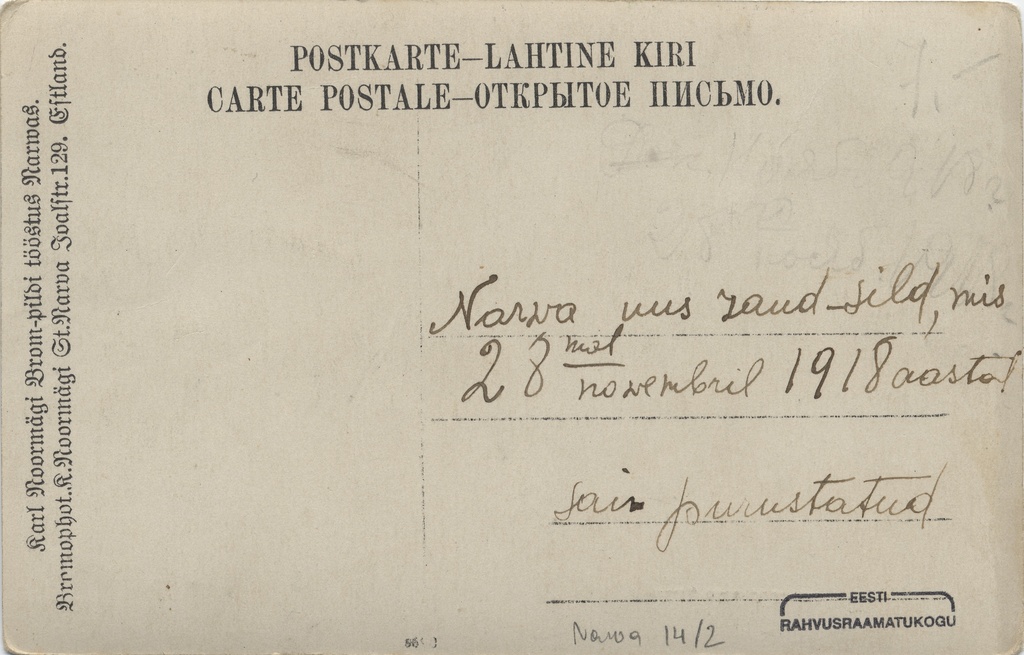 POSTKARTE—LAHTINE KIRI
CARTE POSTALE—ОТКРЫТОЕ ПИСЬМО.
Karl Noormägi Brom-pildi tööstus Narwas.
Bromophot.K.Noormägi St.Narva Joalstr.129. Estland.
Narva uus raud-sild, mis
28 mal novembril 1918 aastal
sai purustatud
Narva 14/2
EESTI
RAHVUSRAAMATUKOGU